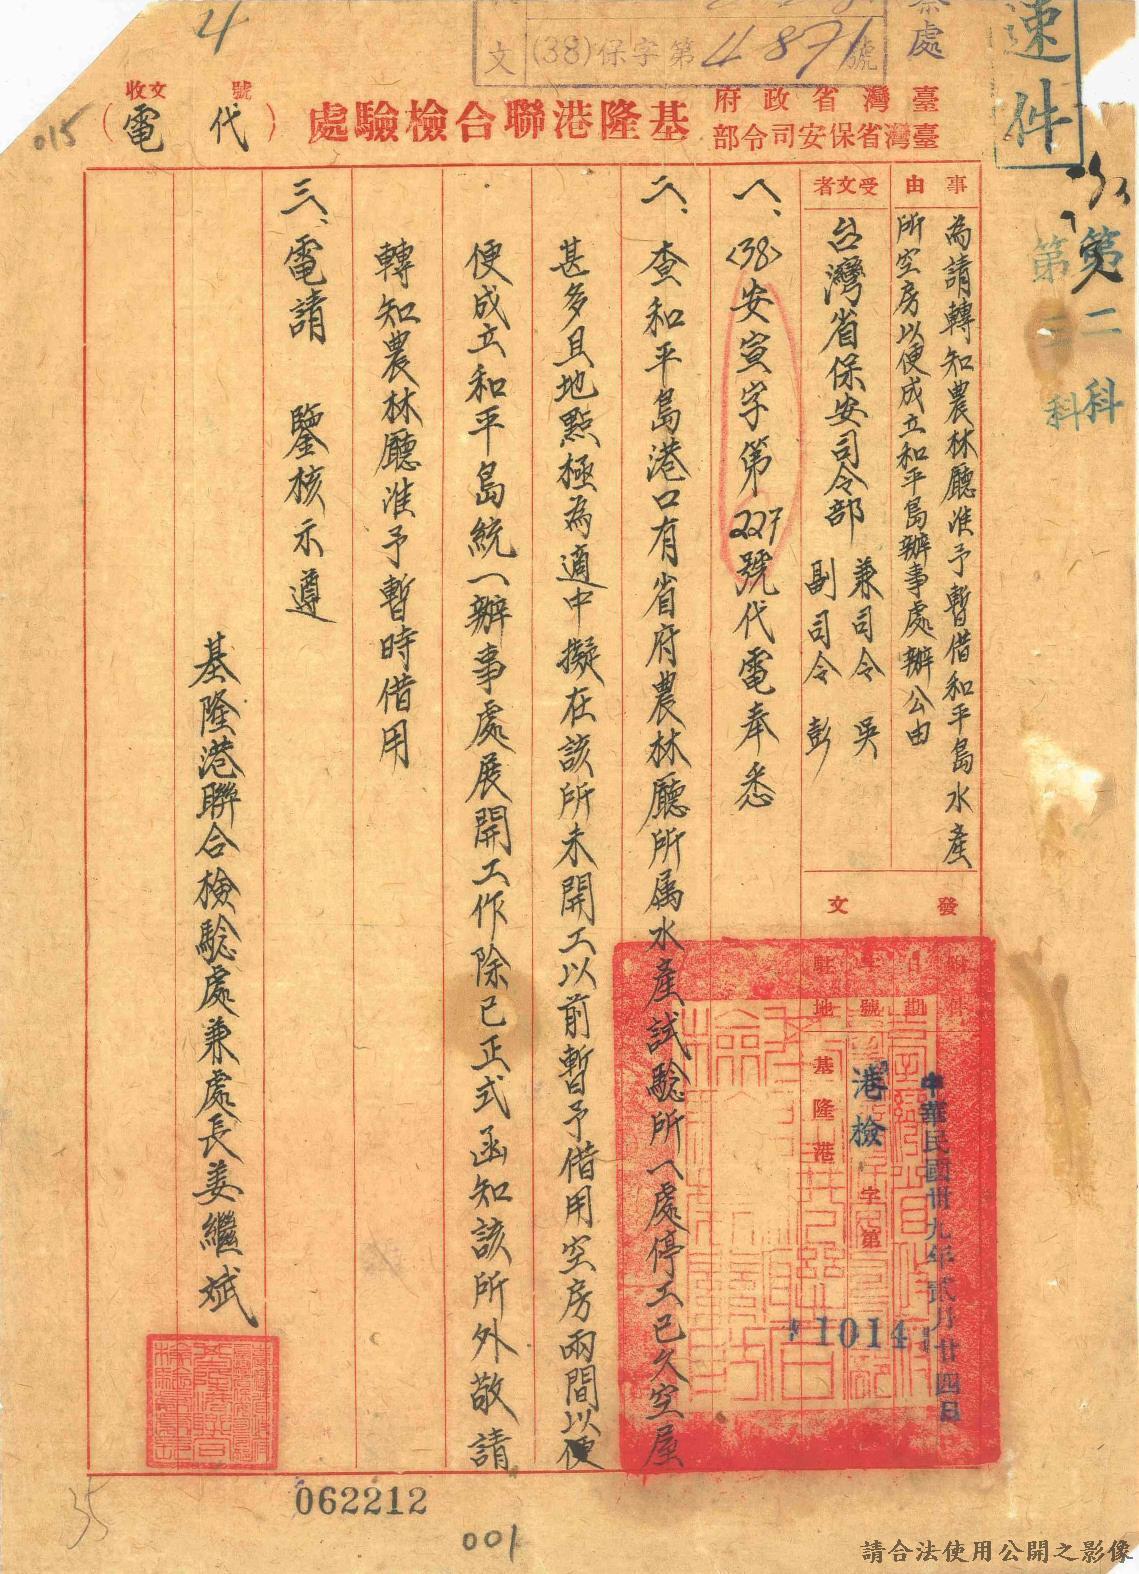 速件
文 (38)保字第4871號
臺灣省政府
臺灣省保安司令部
基隆港聯合檢驗處
（代電）
收文
號
015
第二科
第二科
事由
為請轉知農林廳准予暫借和平島水產
所空房以便成立和平島辦事處辦公由
受文者
台灣省保安司令部
兼司令 吳
副司令 彭
發文
附件
日期
中華民國卅九年貳月廿四日
字號
港檢字第
1014
駐地
基隆港
一、(38)安宣字第227號代電奉悉
二、查和平島港口有省府農林廳所屬水產試驗所一處停工已久空屋
甚多且地點極為適中擬在該所未開工以前暫予借用空房兩間以便
便成立和平島統一辦事處展開工作除已正式函知該所外敬請
轉知農林廳准予暫時借用
三、電請 鑒核示遵
基隆港聯合檢驗處兼處長姜繼斌
35
062212
001
請合法使用公開之影像